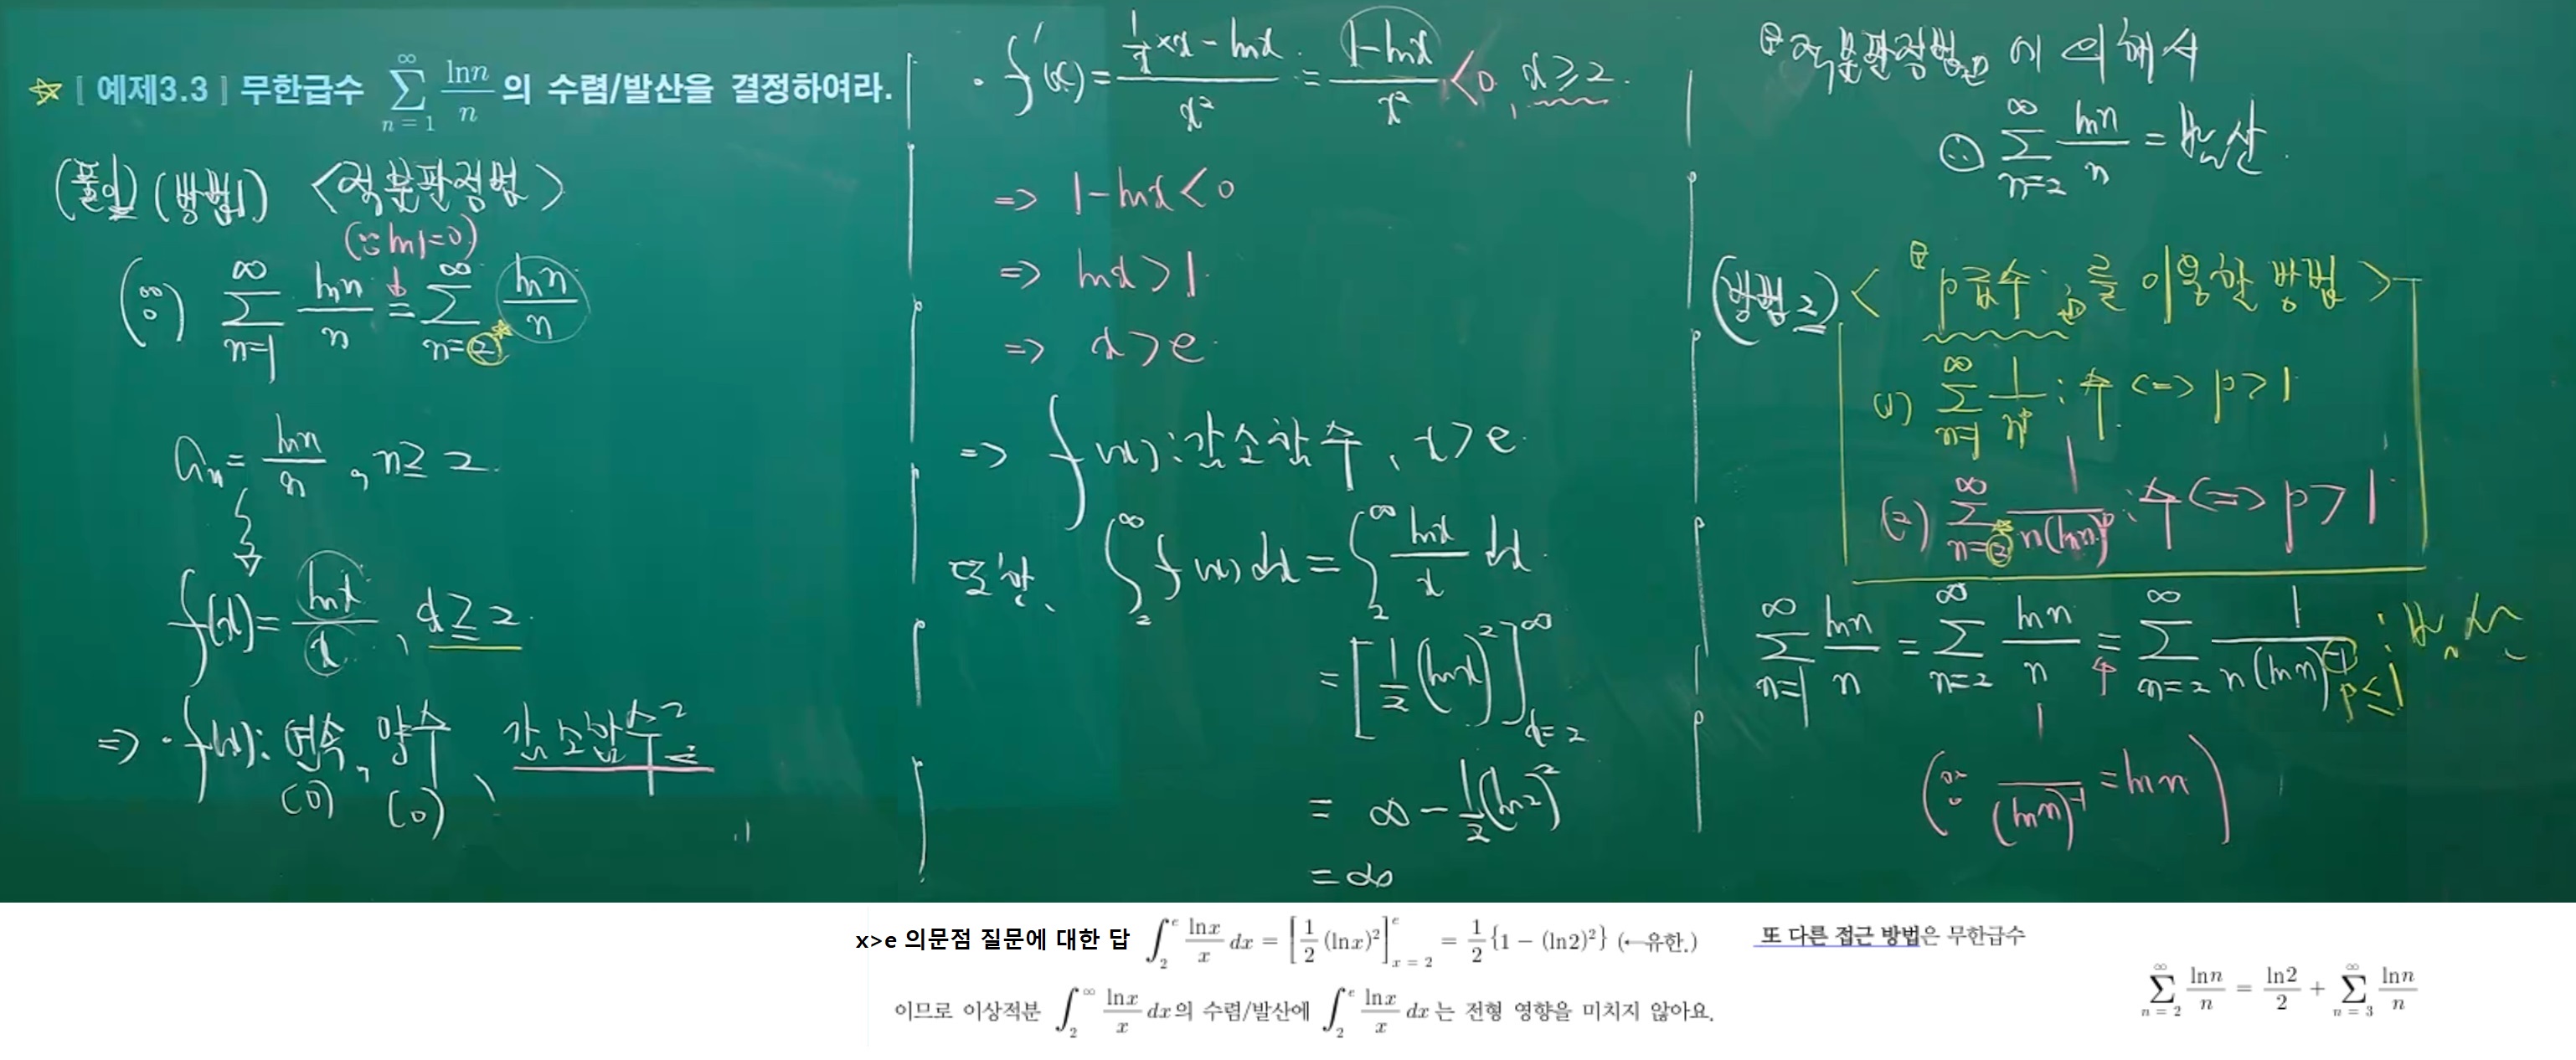 ☆ [예제3.3] 무한급수 \sum_{n=1}^{∞} \frac{lnn}{n} 의 수렴/발산을 결정하여라.
(풀이) (방법1) <적분판정법>
(∵ ln1=0)
(∵) \sum_{n=1}^{∞} \frac{lnn}{n} = \sum_{n=2}^{∞} \frac{lnn}{n}
a_n = \frac{lnn}{n}, n≥2
f(x) = \frac{lnx}{x}, x≥2
⇒ · f(x): 연속, 양수, 감소함수?
(O) (O)
· f'(x) = \frac{\frac{1}{x}×x - lnx}{x²} = \frac{1-lnx}{x²} < 0, x≥2
⇒ 1-lnx < 0
⇒ lnx > 1
⇒ x > e
⇒ f(x): 감소함수, x > e
또한, \int_{2}^{∞} f(x)dx = \int_{2}^{∞} \frac{lnx}{x} dx
= [\frac{1}{2}(lnx)²]_{x=2}^{∞}
= ∞ - \frac{1}{2}(ln2)²
= ∞
적분판정법 에 의해서
∴ \sum_{n=2}^{∞} \frac{lnn}{n} = 발산
(방법2) < p급수 를 이용한 방법 >
(1) \sum_{n=1}^{∞} \frac{1}{n^p} : 수 <=> p > 1
(2) \sum_{n=2}^{∞} \frac{1}{n(lnn)^p} : 수 <=> p > 1
\sum_{n=1}^{∞} \frac{lnn}{n} = \sum_{n=2}^{∞} \frac{lnn}{n} = \sum_{n=2}^{∞} \frac{1}{n(lnn)^{-1}} : 발산
p≤1
(∵ \frac{1}{(lnn)^{-1}} = lnn)
x>e 의문점 질문에 대한 답 \int_{2}^{e} \frac{lnx}{x} dx = [\frac{1}{2}(lnx)²]_{x=2}^{e} = \frac{1}{2}{1-(ln2)²} (←유한.)
이므로 이상적분 \int_{2}^{∞} \frac{lnx}{x} dx의 수렴/발산에 \int_{2}^{e} \frac{lnx}{x} dx는 전형 영향을 미치지 않아요.
또 다른 접근 방법은 무한급수
\sum_{n=2}^{∞} \frac{lnn}{n} = \frac{ln2}{2} + \sum_{n=3}^{∞} \frac{lnn}{n}